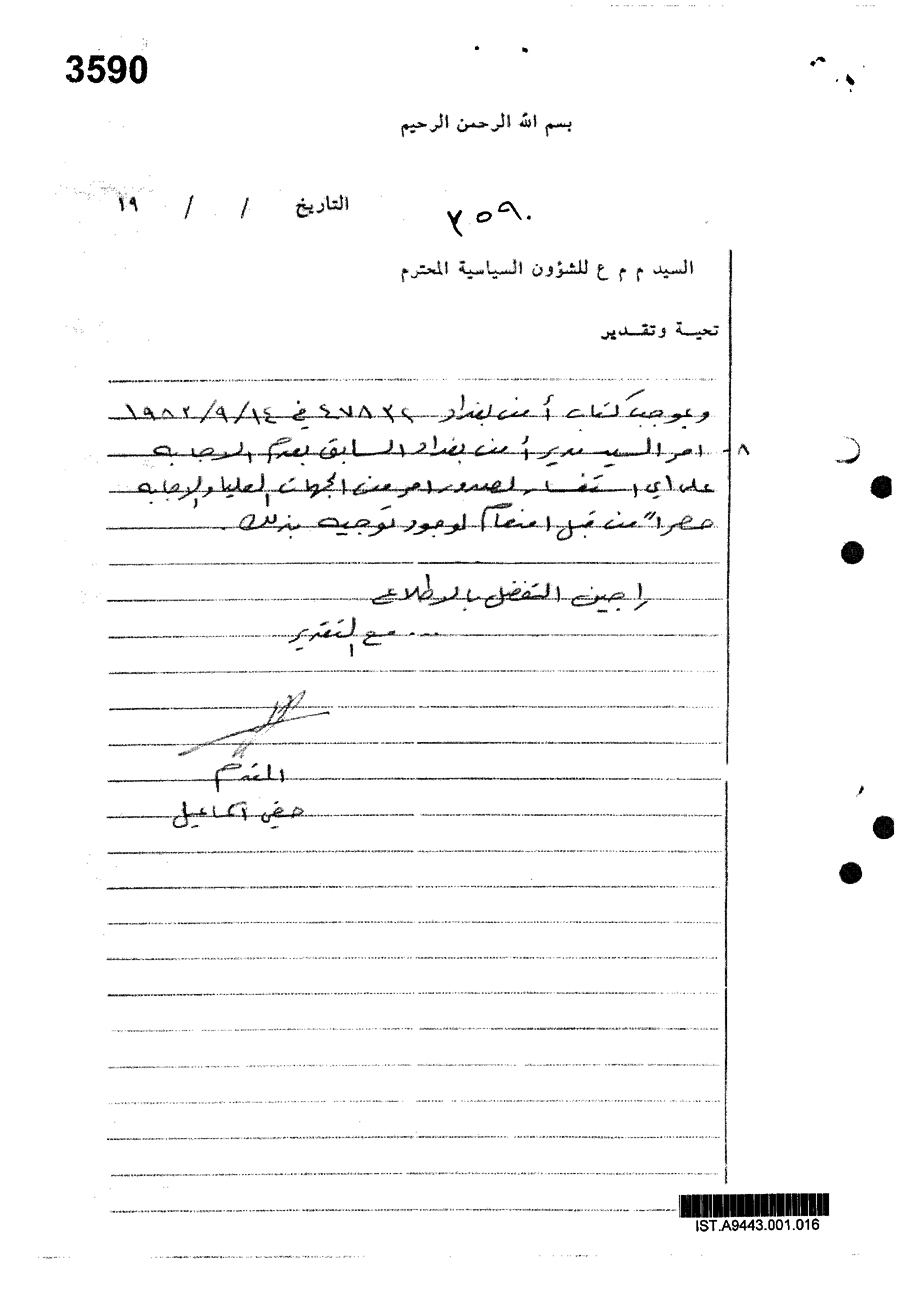 3590
بسم الله الرحمن الرحيم
التاريخ / / ١٩
٣٥٩٠
السيد م م ع للشؤون السياسية المحترم
تحيــة وتقــدير
وبموجب كتاب أمن بغداد ٤٧٨٣٢ في ١٩٨٢/٩/١٤
٨- امر السيد مدير أمن بغداد السابق بعدم الاجابه
على اي استفسار لصدور امر من الجهات العليا والاجابه
حصراً من قبل امنعام لوجود توجيه بذلك.
راجين التفضل بالاطلاع
... مع التقدير
المقدم
اسماعيل
IST.A9443.001.016